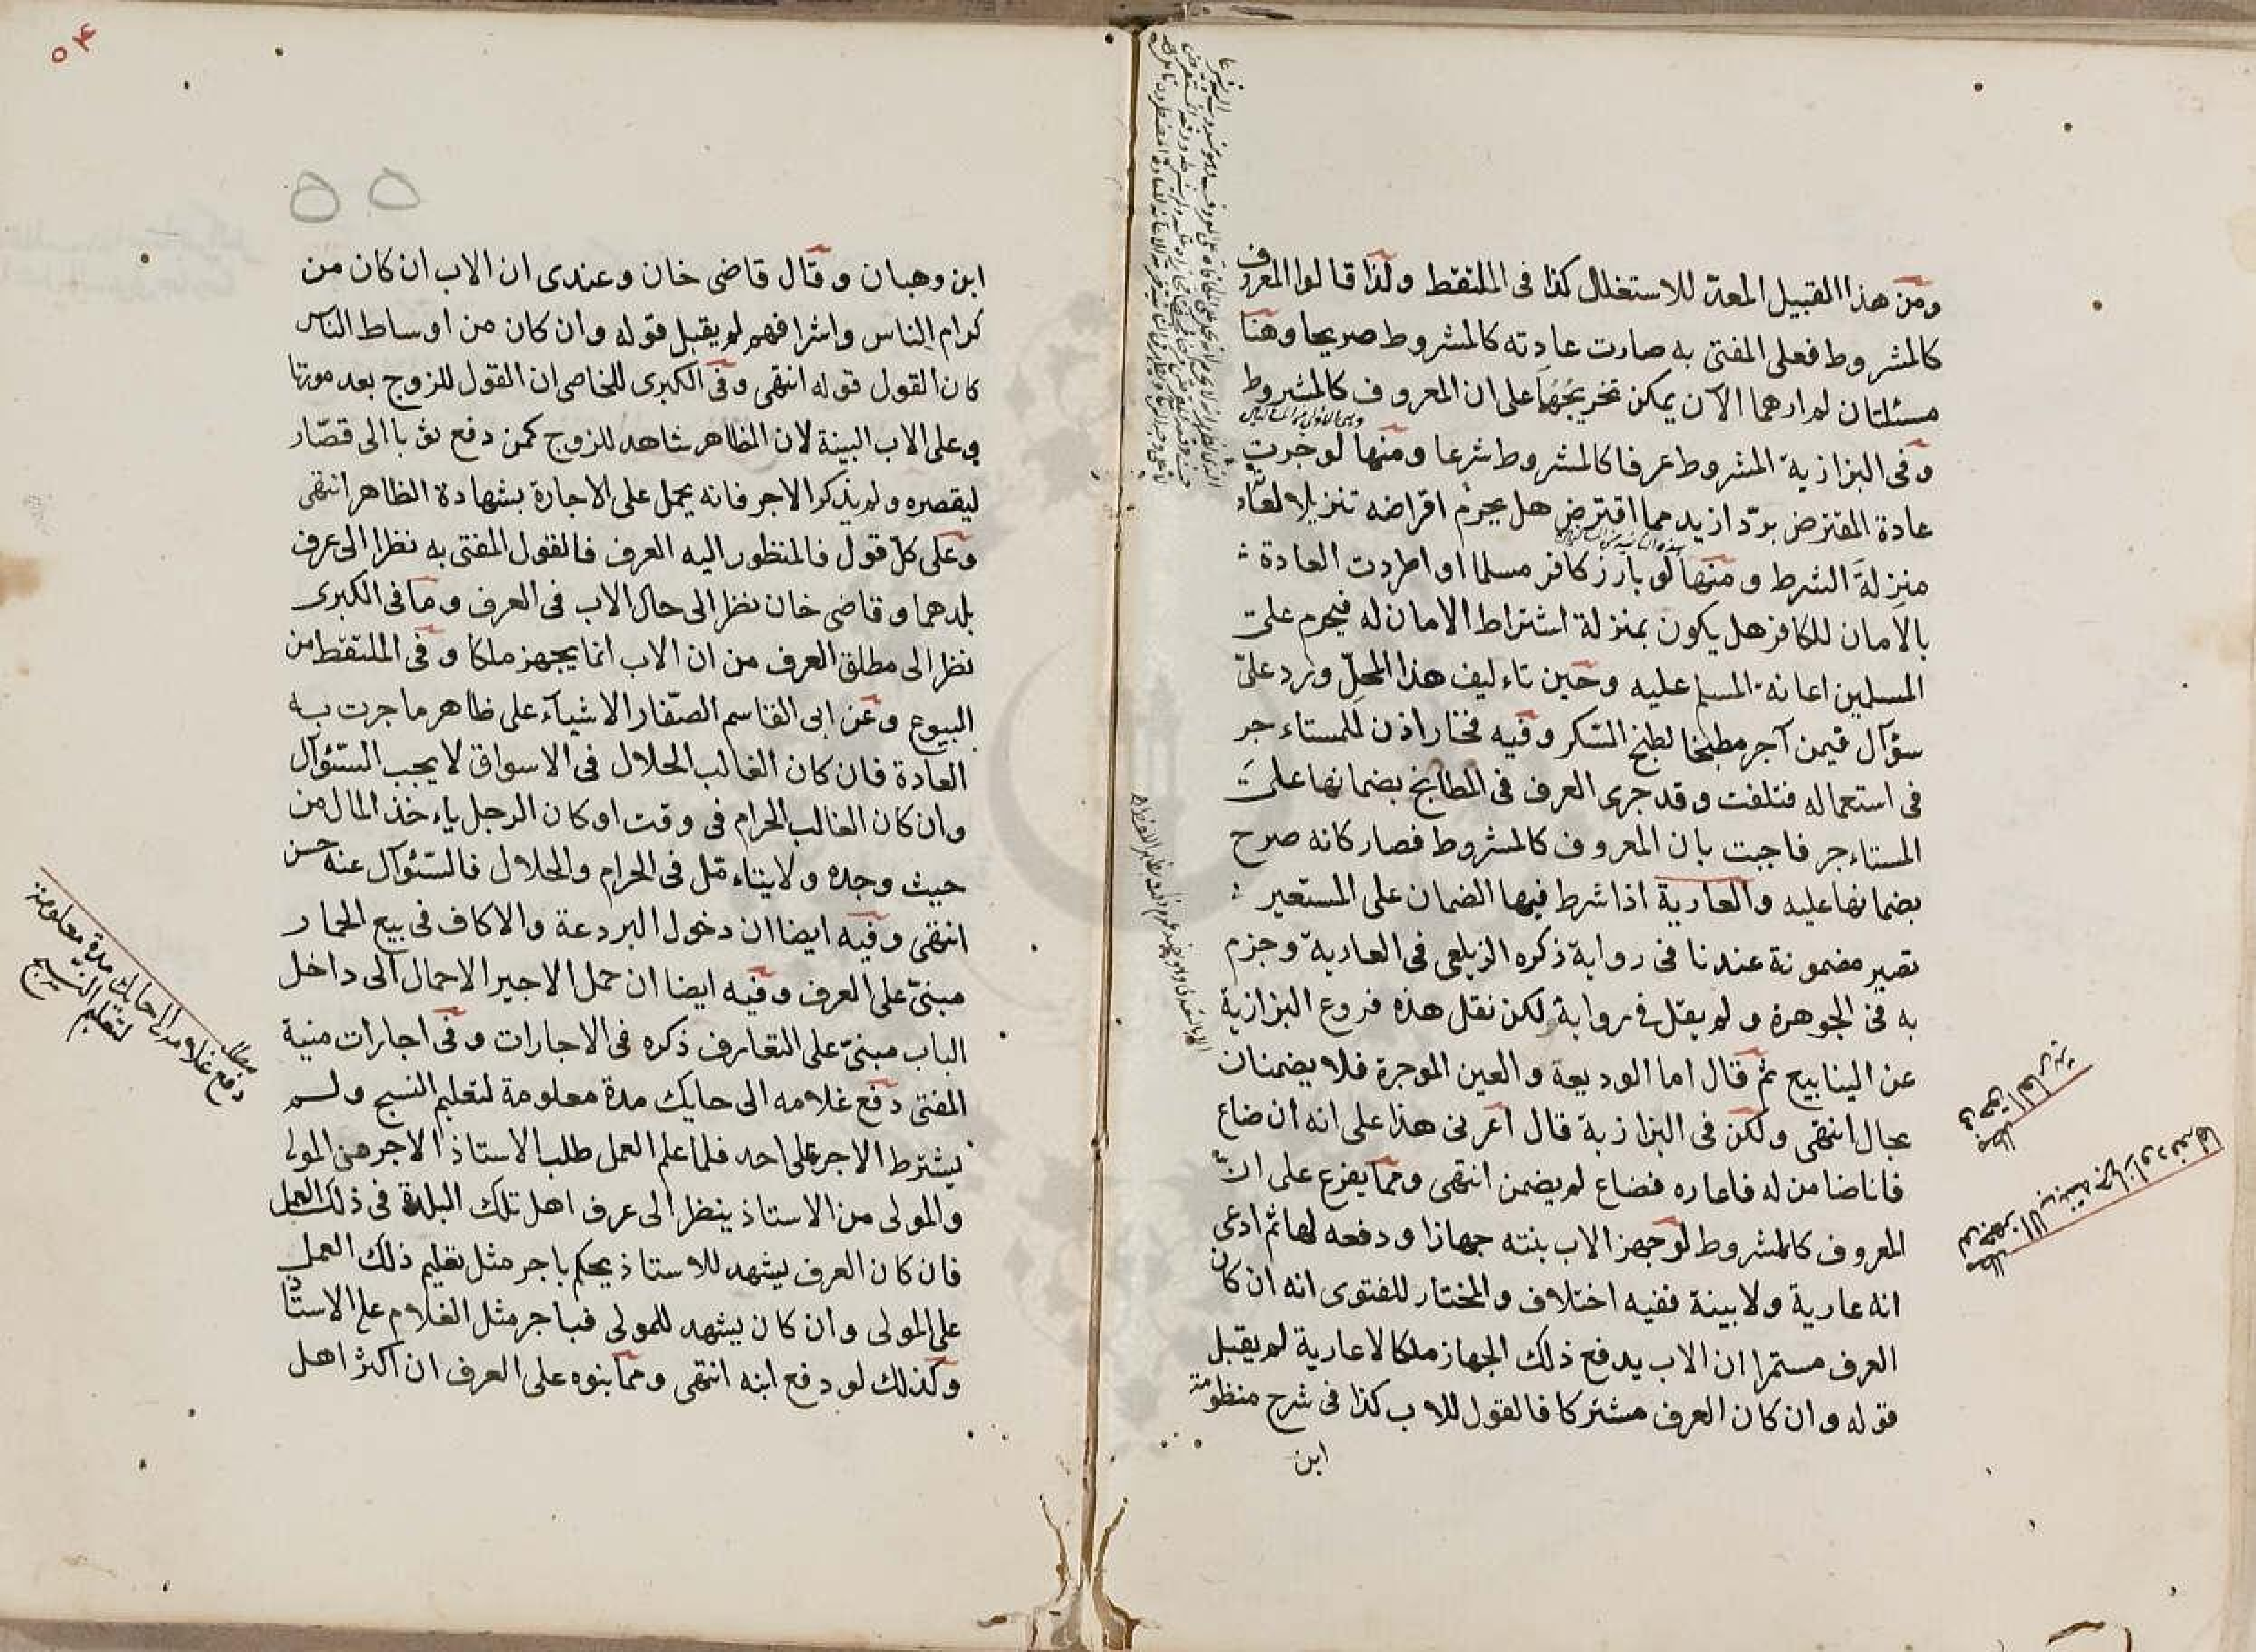 ومن هذا القبيل المعدّ للاستغلال كذا فى الملتقط ولذا قالوا المعروف
كالمشروط فعلى المفتى به صارت عادته كالمشروط صريحا وهنا
مسئلتان لم ارهما الآن يمكن تخريجهما على ان المعروف كالمشروط
وفى البزازية المشروط عرفا كالمشروط شرعا ومنها لو جرت
عادة المقترض بردّ ازيد مما اقترض هل يحرم اقراضه تنزيلا لعاد
منزلة الشرط ومنها لو بارز كافر مسلما او اطردت العادة
بالامان للكافر هل يكون بمنزلة اشتراط الامان له فيحرم على
المسلمين اعانة المسلم عليه وحين تاءليف هذا المحلّ ورد علىّ
سؤال فيمن آجر مطبخا لطبخ السّكر وفيه فخار اذن للمستاءجر
فى استعماله فتلفت وقد جرى العرف فى المطابخ بضمانها على
المستاءجر فاجبت بان المعروف كالمشروط فصار كانه صرح
بضمانها عليه والعارية اذا شرط فيها الضمان على المستعير
تصير مضمونة عندنا فى رواية ذكره الزيلعى فى العارية وجزم
به فى الجوهرة ولم يقل فى رواية لكن نقل هذه فروع البزازية
عن الينابيع ثم قال اما الوديعة والعين الموجرة فلا يضمنان
بحال انتهى ولكن فى البزازية قال اعرنى هذا على انه ان ضاع
فانا ضامن له فاعاره فضاع لم يضمن انتهى ومما يفرع على انّ
المعروف كالمشروط لو جهز الاب بنته جهازا ودفعه لها ثم ادعى
انه عارية ولا بينة ففيه اختلاف والمختار للفتوى انه ان كان
العرف مستمرا ان الاب يدفع ذلك الجهاز ملكا لا عارية لم يقبل
قوله وان كان العرف مشتركا فالقول للاب كذا فى شرح منظومة
ابن
مطلب
فى العارية
مطلب
٥٤
٥٥
ابن وهبان وقال قاضى خان وعندى ان الاب ان كان من
كرام الناس واشرافهم لم يقبل قوله وان كان من اوساط الناس
كان القول قوله انتهى وفى الكبرى للخاصى ان القول للزوج بعد موتها
وعلى الاب البينة لان الظاهر شاهد للزوج كمن دفع ثوبا الى قصّار
ليقصره ولم يذكر الاجر فانه يحمل على الاجارة بشهادة الظاهر انتهى
وعلى كلّ قول فالمنظور اليه العرف فالقول المفتى به نظرا الى عرف
بلدهما وقاضى خان نظر الى حال الاب فى العرف وما فى الكبرى
نظر الى مطلق العرف من ان الاب انما يجهز ملكا وفى الملتقط من
البيوع وعن ابى القاسم الصّفار الاشياء على ظاهر ما جرت به
العادة فان كان الغالب الحلال فى الاسواق لا يجب السّؤال
وان كان الغالب الحرام فى وقت او كان الرجل ياءخذ المال من
حيث وجده ولا يتاءمّل فى الحرام والحلال فالسّؤال عنه حسن
انتهى وفيه ايضا ان دخول البردعة والاكاف فى بيع الحمار
مبنىّ على العرف وفيه ايضا ان حمل الاجير الاحمال الى داخل
الباب مبنىّ على التعارف ذكره فى الاجارات وفى اجارات منية
المفتى دفع غلامه الى حايك مدة معلومة لتعليم النسج ولم
يشترط الاجر على احد فلما علم العمل طلب الاستاذ الاجر من المولى
والمولى من الاستاذ ينظر الى عرف اهل تلك البلدة فى ذلك العمل
فان كان العرف يشهد للاستاذ يحكم باجر مثل تعليم ذلك العمل
على المولى وان كان يشهد للمولى فباجر مثل الغلام على الاستاذ
وكذلك لو دفع ابنه انتهى ومما بنوه على العرف ان اكثر اهل
مطلب
دفع غلامه الى حايك مدة معلومة
لتعليم النسج